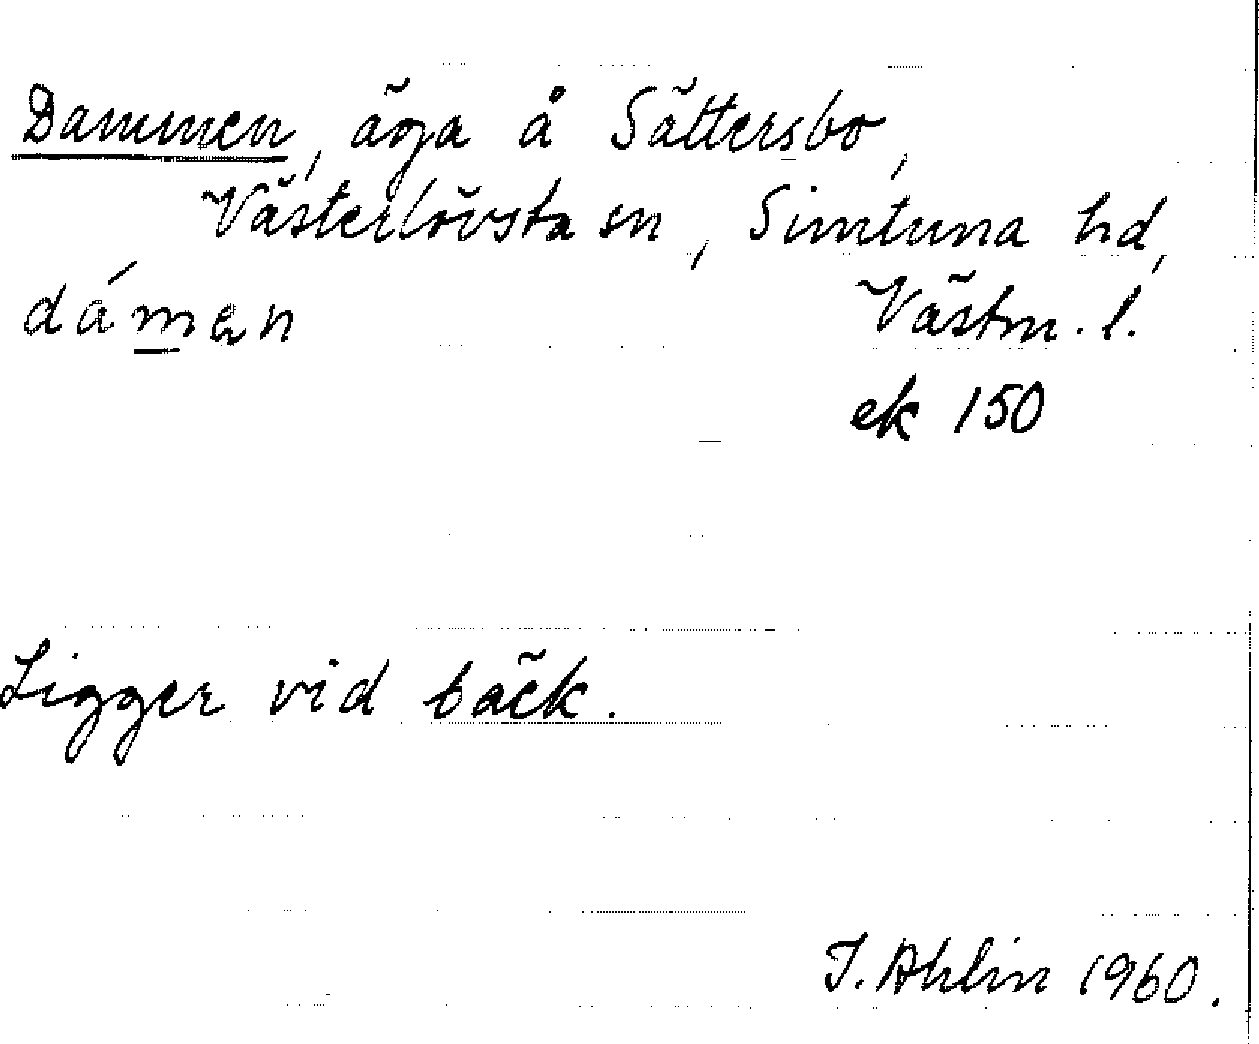 Dammen, äga å Sättersbo,
Västerlövsta sn, Simtuna hd,
dámen Västm. l.
ek 150
Ligger vid bäck.
I. Ahlin 1960.